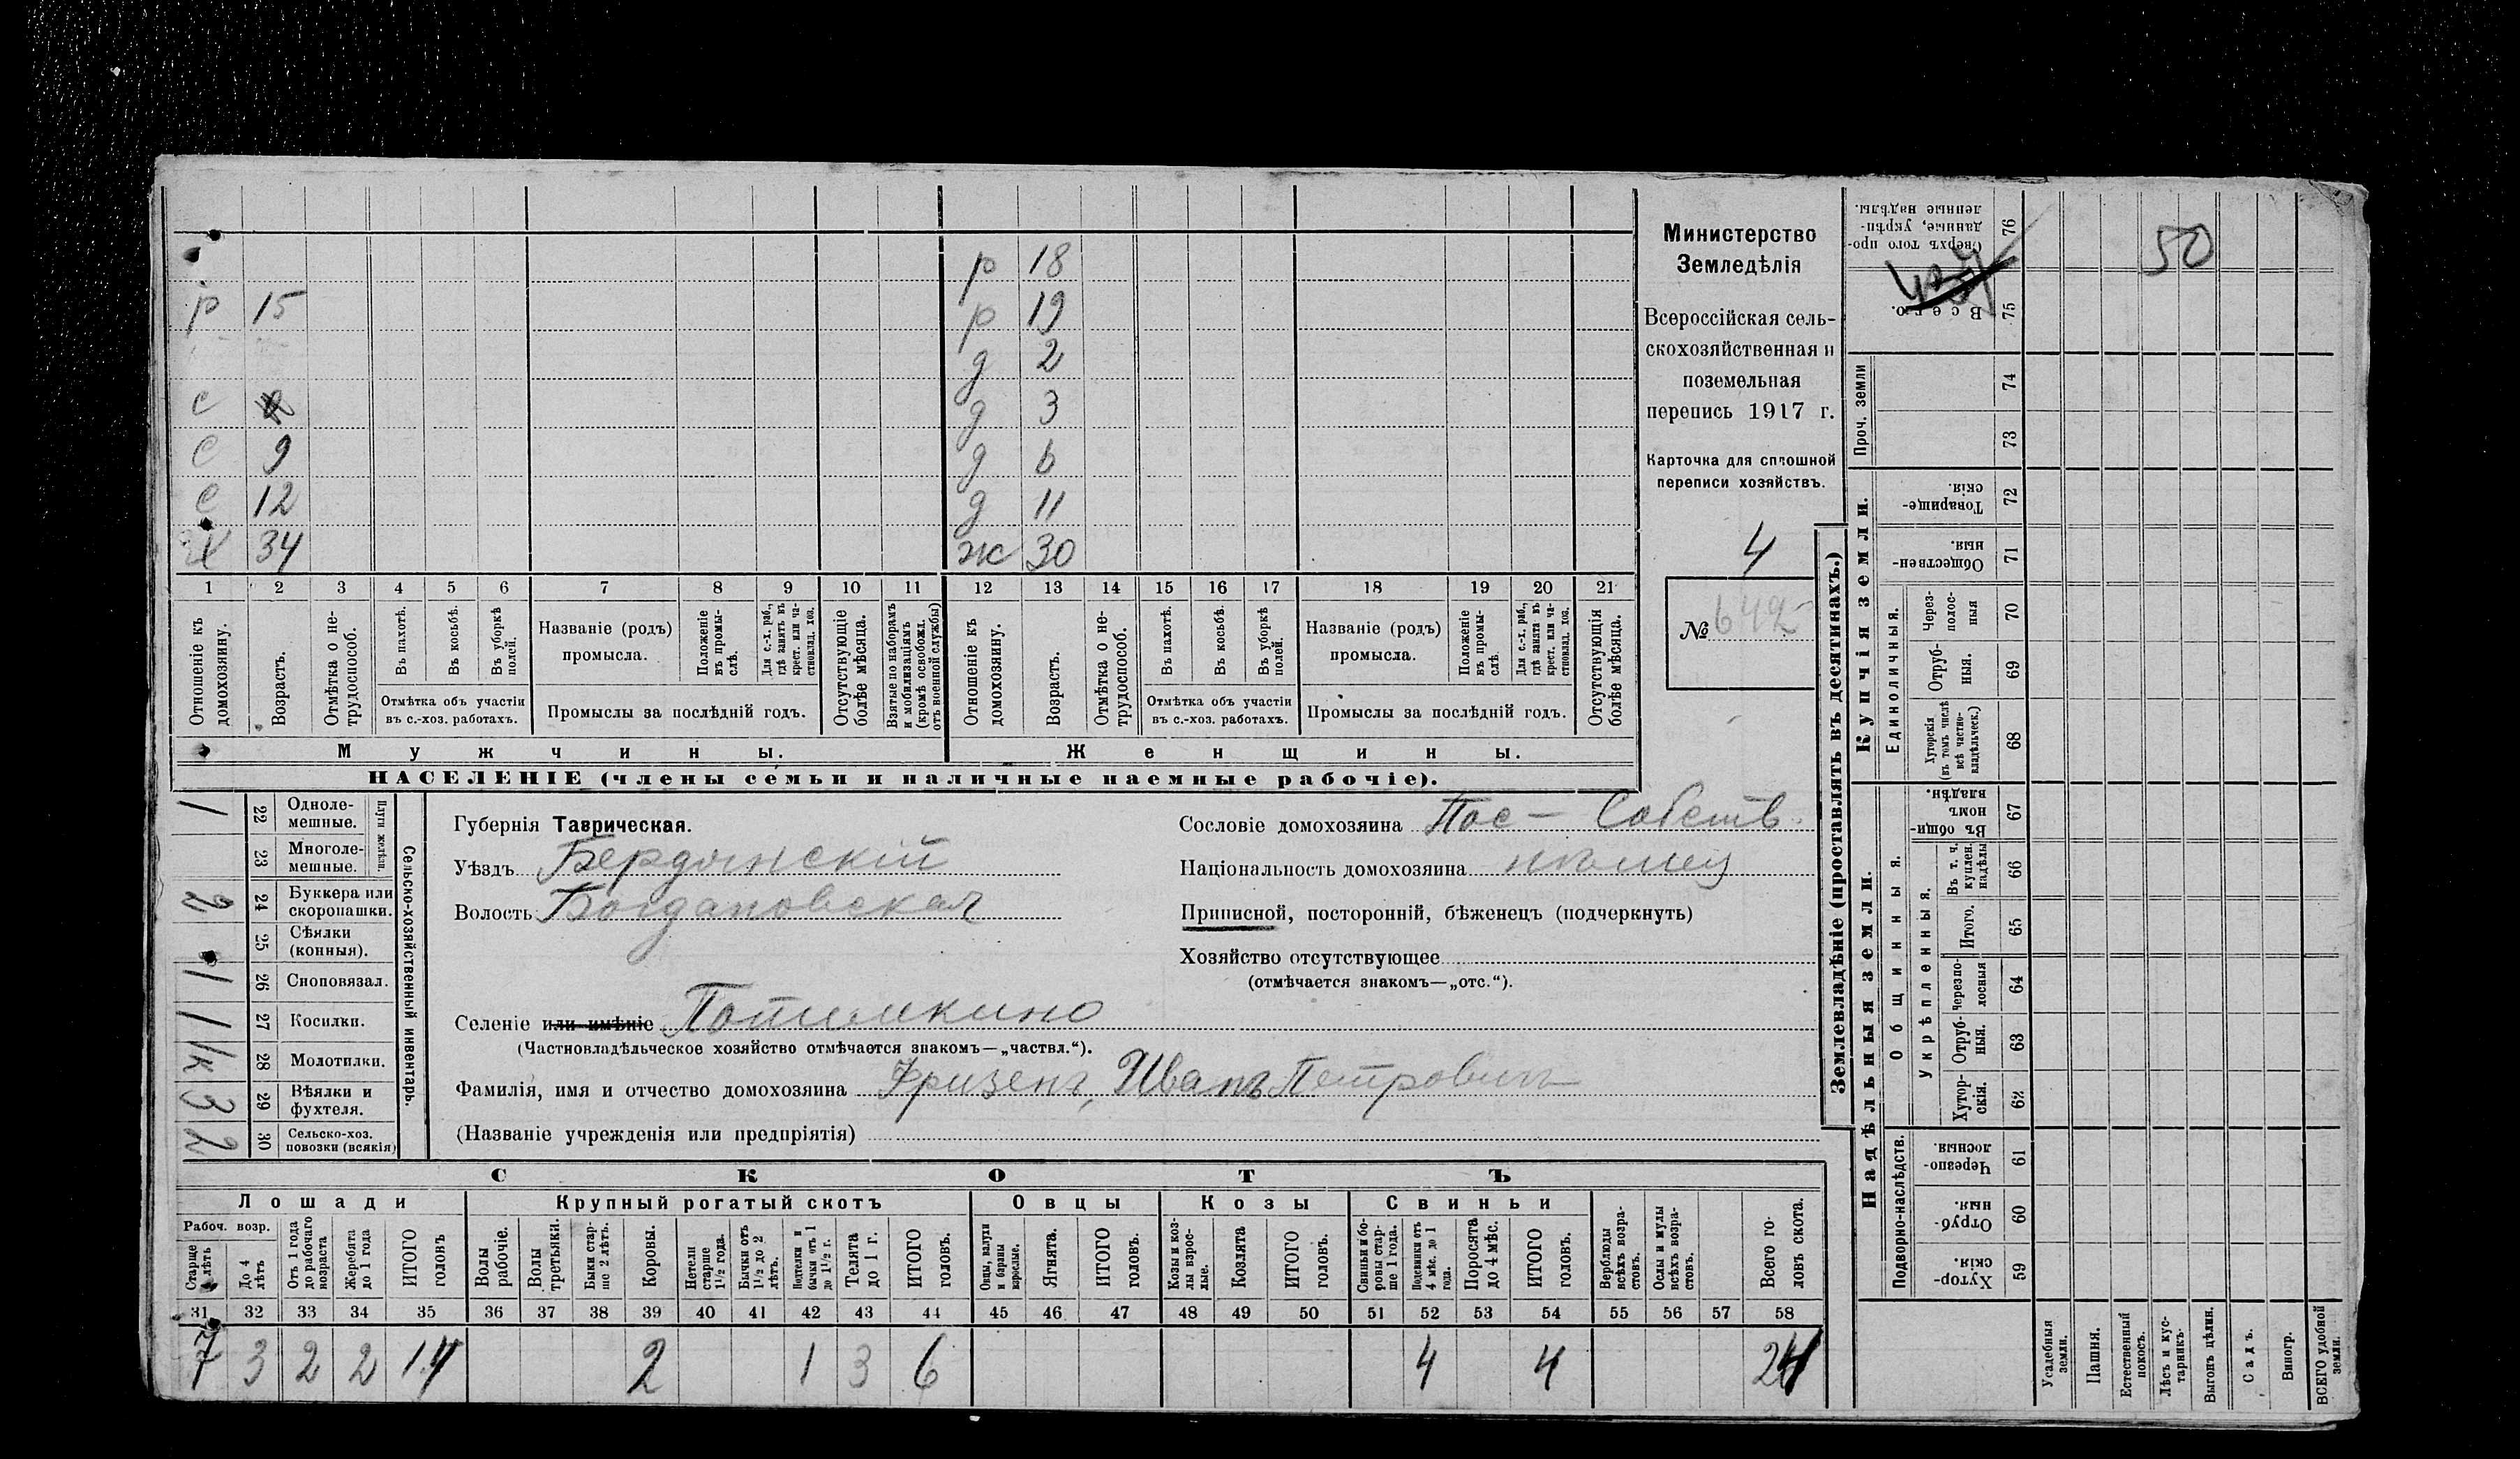 р 18
р 15 р 19
д 2
с д 3
с 9 д 6
с 12 д 11
х 34 ж 30
1 2 3 4 5 6 7 8 9 10 11 12 13 14 15 16 17 18 19 20 21
Отношеніе къ домохозяину.
Возрастъ.
Отмѣтка о не-
трудоспособ.
Въ пахотѣ.
Въ косьбѣ.
Въ уборкѣ полей.
Отмѣтка объ участіи
въ с.-хоз. работахъ.
Названіе (родъ)
промысла.
Положеніе въ промы-
слѣ.
Для с.-х. раб., гдѣ занятъ въ крест. или ча-
стновлад. хоз.
Промыслы за послѣдній годъ.
Отсутствующіе болѣе мѣсяца.
Взятые по наборамъ и мобилизаціямъ (кромѣ освобожд. отъ военной службы)
Отношеніе къ домохозяину.
Возрастъ.
Отмѣтка о не-
трудоспособ.
Въ пахотѣ.
Въ косьбѣ.
Въ уборкѣ полей.
Отмѣтка объ участіи
въ с.-хоз. работахъ.
Названіе (родъ)
промысла.
Положеніе въ промы-
слѣ.
Для с.-х. раб., гдѣ занята въ крест. или ча-
стновлад. хоз.
Промыслы за послѣдній годъ.
Отсутствующія болѣе мѣсяца.
Мужчины. Женщины.
НАСЕЛЕНІЕ (члены семьи и наличные наемные рабочіе).
Министерство
Земледѣлія
Всероссійская сель-
скохозяйственная и
поземельная
перепись 1917 г.
Карточка для сплошной
переписи хозяйствъ.
4
№ 642
Сельско-хозяйственный инвентарь.
Плуги желѣзн.
1 22 Одноле-
мешные.
23 Многоле-
мешные.
2 24 Буккера или
скоропашки.
25 Сѣялки
(конныя).
1 26 Сноповязал.
1 27 Косилки.
1к 28 Молотилки.
3 29 Вѣялки и
фухтеля.
2 30 Сельско-хоз.
повозки (всякія)
Губернія Таврическая.
Уѣздъ Бердянскій
Волость Богдановская
Селеніе или имѣніе Потемкино
(Частновладѣльческое хозяйство отмѣчается знакомъ—„частвл.“).
Фамилія, имя и отчество домохозяина Фризенъ, Иванъ Петровичъ
(Названіе учрежденія или предпріятія)
Сословіе домохозяина Пос - Собств.
Національность домохозяина нѣмец
Приписной, посторонній, бѣженецъ (подчеркнуть)
Хозяйство отсутствующее
(отмѣчается знакомъ—„отс.“).
СКОТЪ
Лошади Крупный рогатый скотъ Овцы Козы Свиньи
Рабоч. возр.
Старше 4 лѣтъ
До 4 лѣтъ
Отъ 1 года до рабочаго возраста
Жеребята до 1 года
ИТОГО головъ
Волы рабочіе.
Волы третьяки.
Быки стар-
ше 2 лѣтъ.
Коровы.
Нетели старше 1½ года.
Бычки отъ 1½ до 2 лѣтъ.
Подтелки и бычки отъ 1 до 1½ г.
Телята до 1 г.
ИТОГО головъ.
Овцы, валухи и бараны взрослые.
Ягнята.
ИТОГО головъ.
Козы и коз-
лы взрос-
лые.
Козлята
ИТОГО головъ.
Свиньи и бо-
ровы стар-
ше 1 года.
Подсвинки отъ 4 мѣс. до 1 года.
Поросята до 4 мѣс.
ИТОГО головъ.
Верблюды всѣхъ возра-
стовъ.
Ослы и мулы всѣхъ возра-
стовъ.
Всего го-
ловъ скота.
31 32 33 34 35 36 37 38 39 40 41 42 43 44 45 46 47 48 49 50 51 52 53 54 55 56 57 58
7 3 2 2 14 2 1 3 6 4 4 24
Землевладѣніе (проставлять въ десятинахъ.)
Купчія земли.
Надѣльныя земли.
Сверхъ того про-
данные, укрѣп-
ленные надѣлы. 76
Всего. 75
50
Проч. земли 74
73
Товарище-
скія. 72
Обществен-
ныя. 71
Единоличныя.
Через-
полос-
ныя 70
Отруб-
ныя. 69
Хуторскія (въ томъ числѣ всѣ частно-
владѣльческ.) 68
Общинныя.
Въ общин-
номъ владѣн. 67
Укрѣпленныя.
Въ т. ч. куплен. надѣлы 66
Итого. 65
Черезпо-
лосныя 64
Отруб-
ныя. 63
Хутор-
скія. 62
Подворно-наслѣдств.
Черезпо-
лосныя. 61
Отруб-
ныя. 60
Хутор-
скія. 59
Усадебныя земли.
Пашня.
Естественный покосъ.
Лѣсъ и кус-
тарникъ.
Выгонъ цѣлин.
Садъ.
Виногр.
ВСЕГО удобной земли.